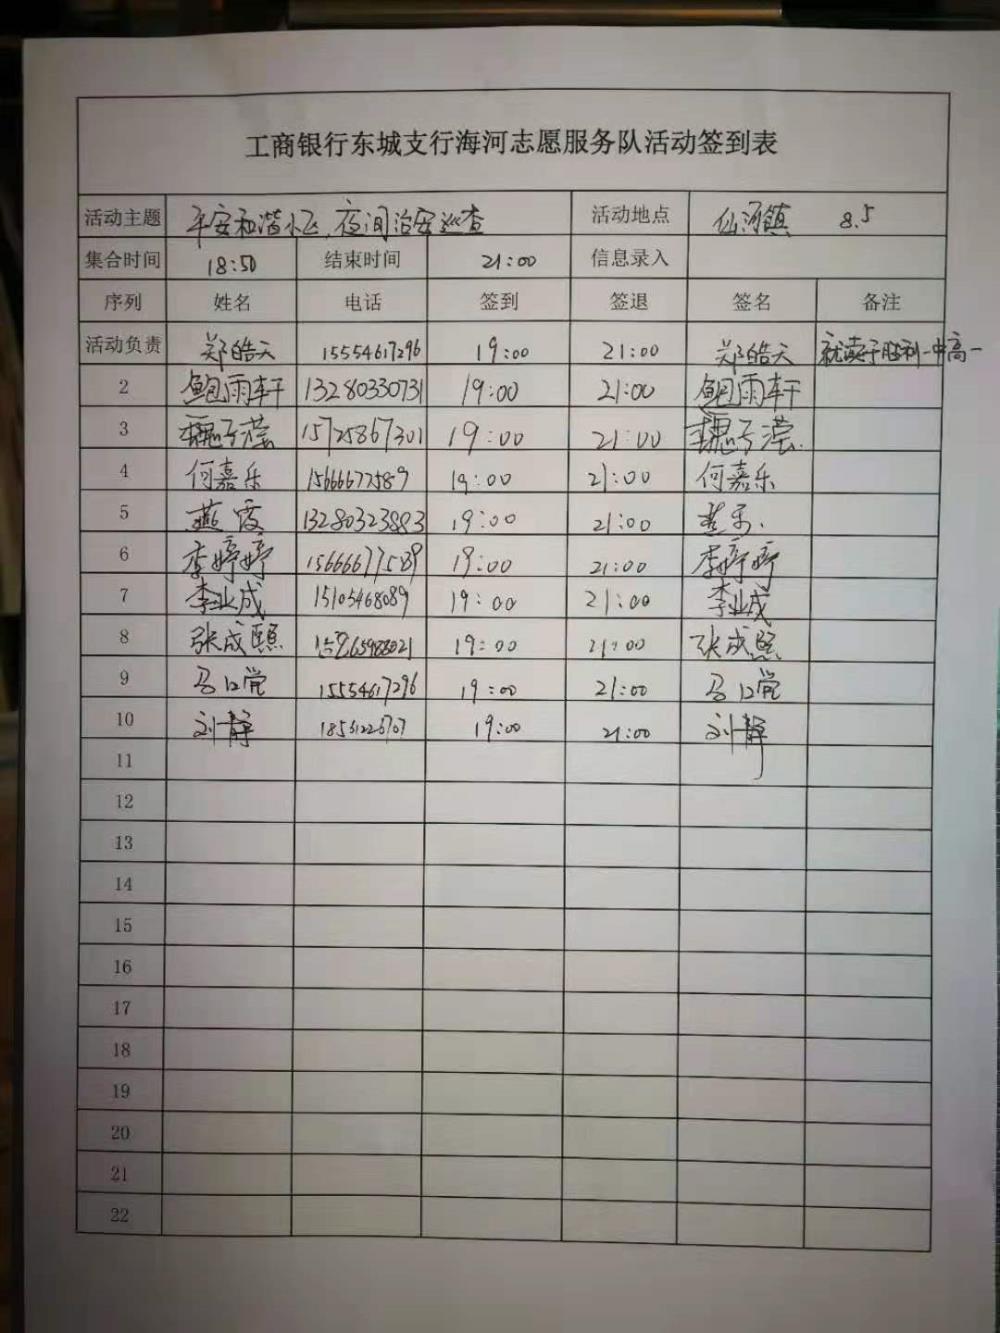 工商银行东城支行海河志愿服务队活动签到表
活动主题 平安和谐小区,夜间治安巡查 活动地点 仙河镇 8.5
集合时间 18:50 结束时间 21:00 信息录入
序列 姓名 电话 签到 签退 签名 备注
活动负责 郑皓天 15554617296 19:00 21:00 郑皓天 就读于胜利一中高一
2 鲍雨轩 13280330731 19:00 21:00 鲍雨轩
3 15725867301 19:00 21:00
4 何嘉乐 15666677589 19:00 21:00 何嘉乐
5 燕霞 13280323883 19:00 21:00
6 李婷婷 15666677589 19:00 21:00 李婷婷
7 李业成 15105468089 19:00 21:00 李业成
8 张成熙 19:00 21:00 张成熙
9 15554617296 19:00 21:00
10 刘静 19:00 21:00 刘静
11
12
13
14
15
16
17
18
19
20
21
22